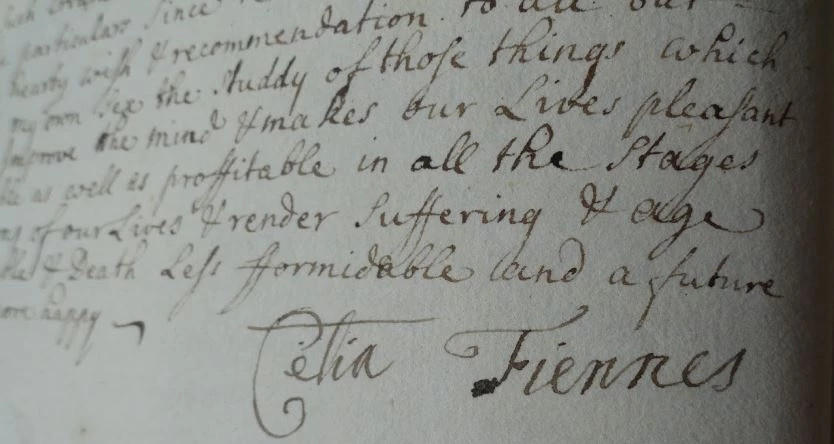 particulars since
hearty wish & recommendation to all our
my own Sex the studdy of those things which
Improve the mind & makes our Lives pleasant
as well as proffitable in all the Stages
of our Lives & render suffering & age
& Death Less fformidable and a future
more happy
Celia Fiennes